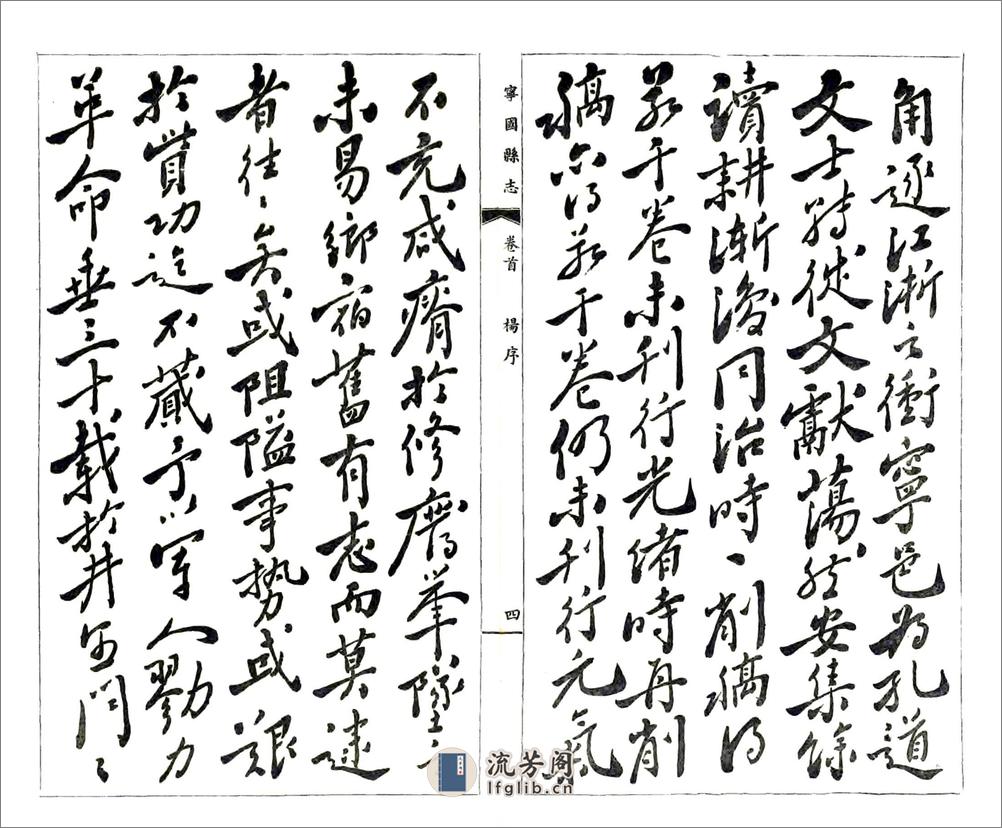 角逐江浙之衝寧邑為孔道
文士轉徙文獻蕩然安集餘
讀耕漸復同治時一削稿得
若干卷未刊行光緒時再削
稿亦得若干卷仍未刊行元氣
寧國縣志 卷首 楊序 四
不充咸瘠於修廢舉墜
未易鄉宿舊有志而莫逮
者往〻矣或阻隘事勢或艱
於貲功迄不蕆予以軍人勠力
革命垂三十載於井
流芳阁
lfglib.cn